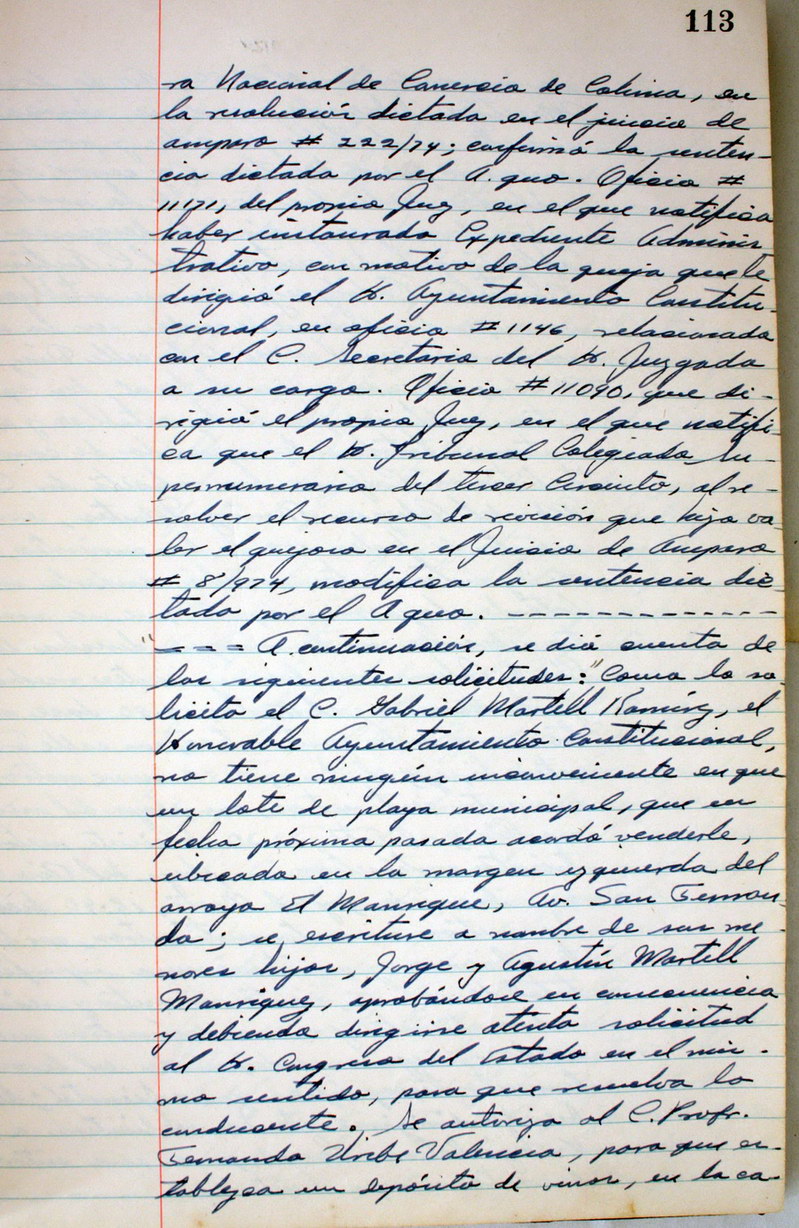 113
ra Nacional de Comercio de Colima, en
la resolución dictada en el juicio de
amparo # 222/74; confirmó la senten-
cia dictada por el A. quo. Oficio #
11171, del propio Juez, en el que notifica
haber instaurado Expediente Adminis
trativo, con motivo de la queja que le
dirigió el H. Ayuntamiento Constitu-
cional, en oficio # 1146, relacionada
con el C. Secretario del H. Juzgado
a su cargo. Oficio # 11090, que di-
rigió el propio Juez, en el que notifi-
ca que el H. Tribunal Colegiado Su-
pernumerario del tercer Circuito, al re-
solver el recurso de revisión que hizo va-
ler el quejoso en el Juicio de Amparo
# 8/974, modifica la sentencia dic-
tada por el A quo. - - - - - - - - - - - - -
" - = - = A continuación, se dió cuenta de
las siguientes solicitudes: " Como lo so-
licita el C. Gabriel Martell Ramírez, el
Honorable Ayuntamiento Constitucional,
no tiene ningún inconveniente en que
un lote de playa municipal, que en
fecha próxima pasada acordó venderle,
ubicado en la margen izquierda del
arroyo El Manrique, Av. San Fernan-
do; se escriture a nombre de sus me-
nores hijos, Jorge y Agustín Martell
Manríquez, aprobándose en consecuencia
y debiendo dirigirse atenta solicitud
al H. Congreso del Estado en el mis-
mo sentido, para que resuelva lo
conducente. Se autoriza al C. Profr.
Fernando Uribe Valencia, para que es-
tablezca un depósito de vinos, en la ca-